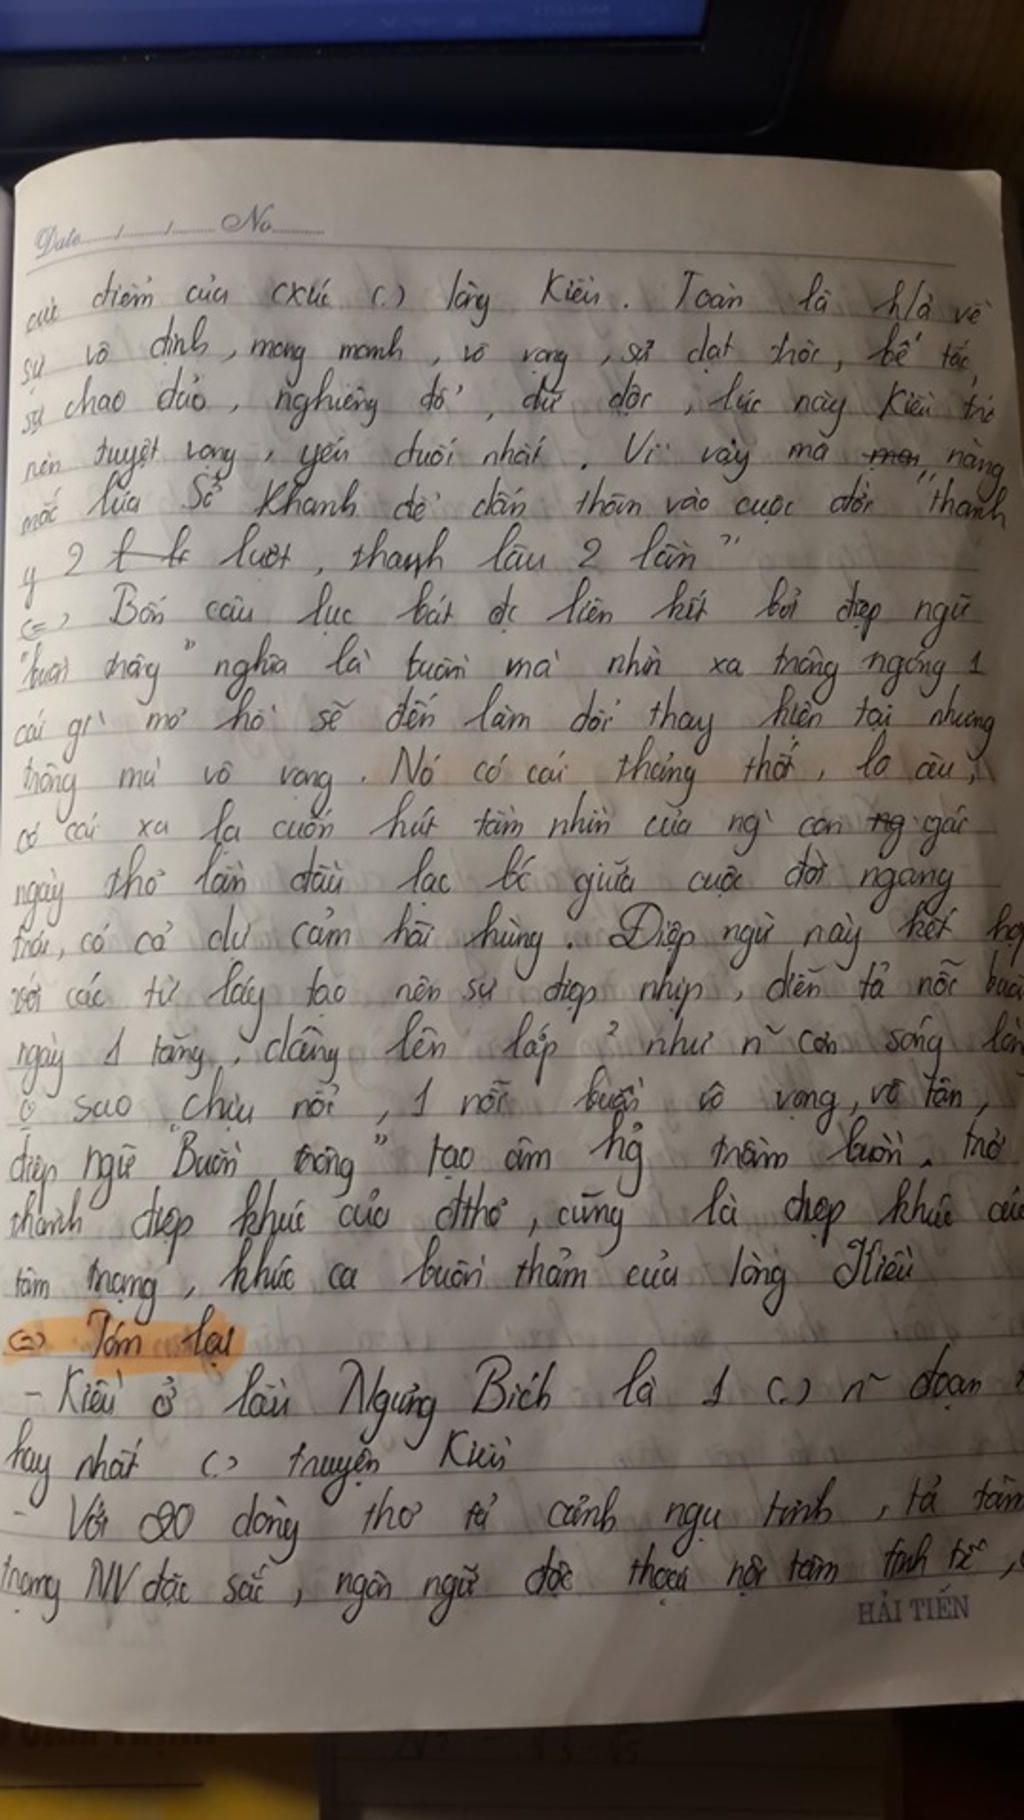 Date...../...../....... No..........
cực điểm của cxúc (.) lòng Kiều. Toàn là h/ả về
sự vô định, mong manh, vô vọng, sự dạt trôi, bế tắc,
sự chao đảo, nghiêng đổ, dữ dội, lúc này Kiều trở
nên tuyệt vọng, yếu đuối nhất. Vì vậy mà nàng
mắc lừa Sở Khanh để dấn thân vào cuộc đời "thanh
y 2 lượt, thanh lâu 2 lần"
(=) Bốn câu lục bát đc liên kết bởi điệp ngữ
"buồn trông" nghĩa là buồn mà nhìn xa trông ngóng 1
cái gì mơ hồ sẽ đến làm đổi thay hiện tại nhưng
trông mà vô vọng. Nó có cái thảng thốt, lo âu,
có cái xa lạ cuốn hút tầm nhìn của ng` con gái
ngây thơ lần đầu lạc bc giữa cuộc đời ngang
trái, có cả dự cảm hãi hùng. Điệp ngữ này kết hợp
với các từ láy tạo nên sự điệp nhịp, diễn tả nỗi buồn
ngày 1 tăng, dâng lên lớp ² như n~ con sóng lòng
sao chịu nổi, 1 nỗi buồn vô vọng, vô tận,
điệp ngữ "Buồn trông" tạo âm hg̉ trầm buồn, trở
thành điệp khúc của đthơ, cũng là điệp khúc của
tâm trạng, khúc ca buồn thảm của lòng Kiều
(=) Tóm lại
- Kiều ở lầu Ngưng Bích là 1 (.) n~ đoạn
hay nhất (.) truyện Kiều
- Với 20 dòng thơ tả cảnh ngụ tình, tả tâm
trạng NV đặc sắc, ngôn ngữ độc thoại nội tâm tinh tế,
HẢI TIẾN